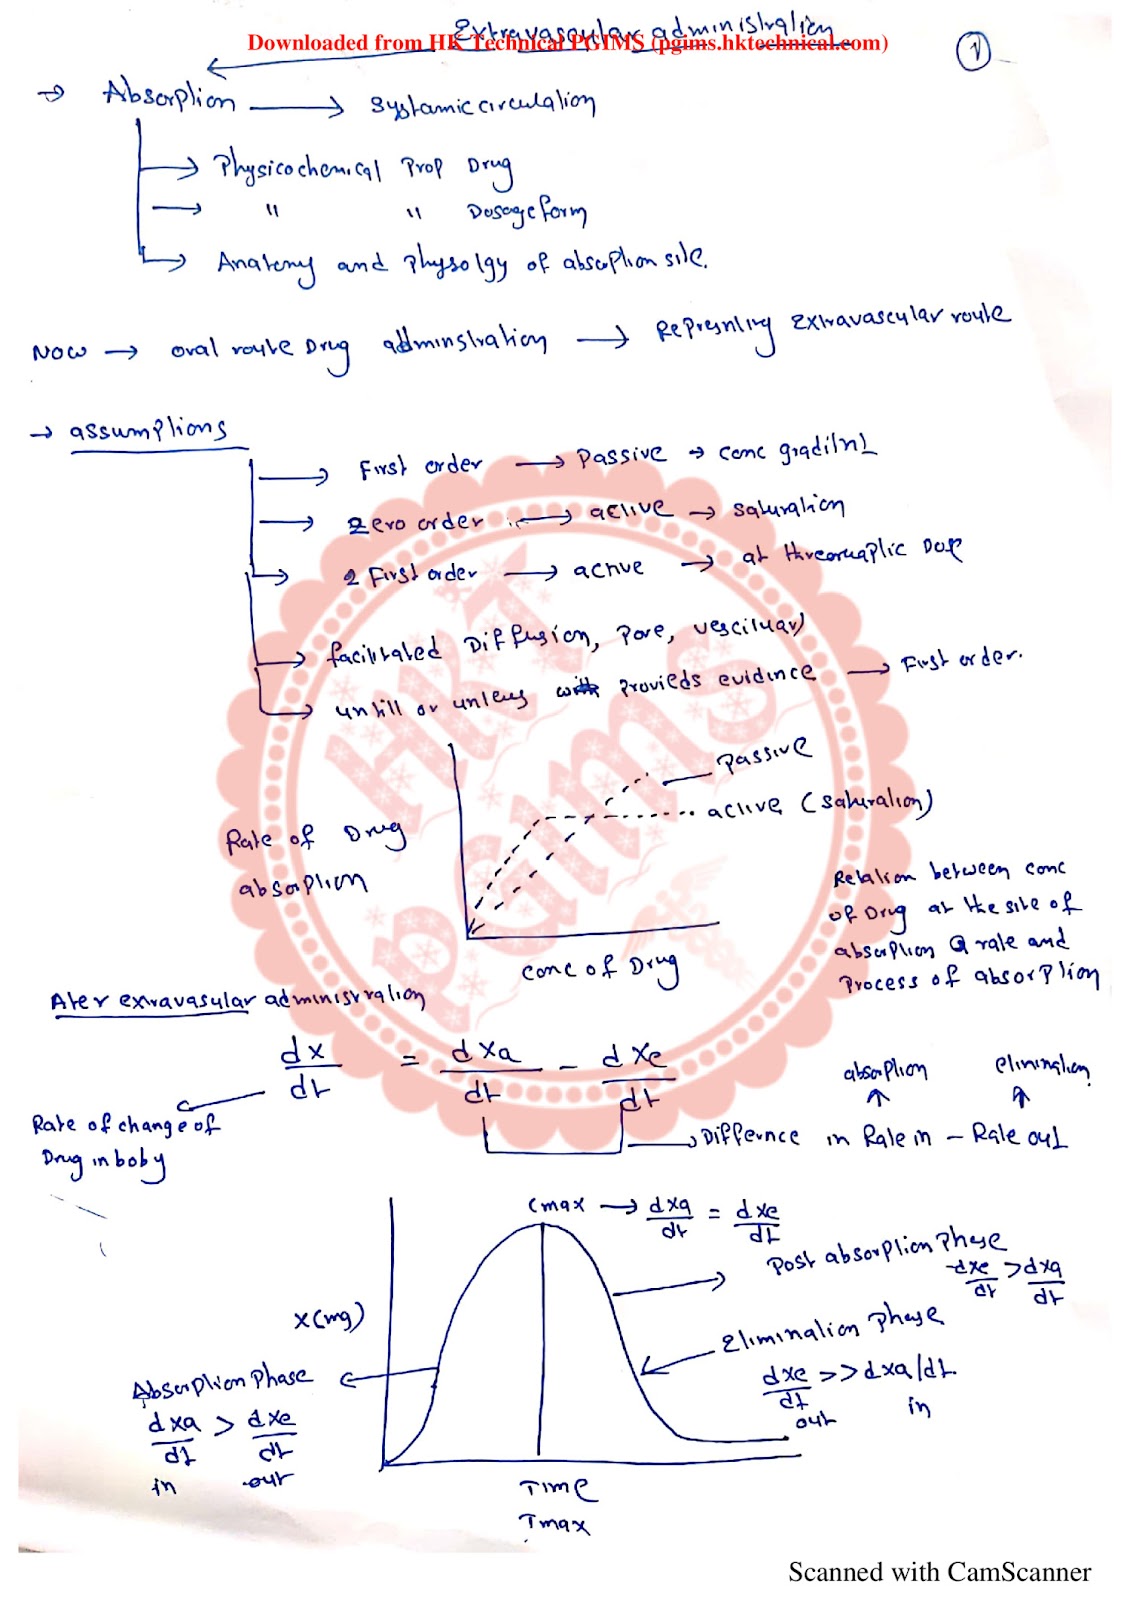 Extravascular administration
Downloaded from HK Technical PGIMS (pgims.hktechnical.com)
1
→ Absorption → Systamic circulation
→ Physicochemical Prop Drug
→ " " Dosage form
→ Anatomy and Physolgy of absorption site.
Now → oral route Drug adminstration → Represnting Extravascular route
→ assumptions
→ First order → Passive → conc gradint
→ Zero order → active → saturation
→ 2 First order → active → at
→ facilitated Diffusion, Pore,
→ untill or unless provieds evidence → First order.
Passive
active (saturation)
Rate of Drug
absorption
conc of Drug
Relation between conc
of Drug at the site of
absorption & rate and
Process of absorption
Ater extravasular administration
dx/dt = dxa/dt - dxe/dt
absorption elimination
Rate of change of
Drug in boby
→ Differnce in Rate in - Rate out
Cmax → dxa/dt = dxe/dt
Post absorption Phase
dxe/dt > dxa/dt
X(mg)
Elimination Phase
dxe/dt >> dxa/dt
out in
Absorption Phase
dxa/dt > dxe/dt
in out
Time
Tmax
HKT
PGIMS
Scanned with CamScanner